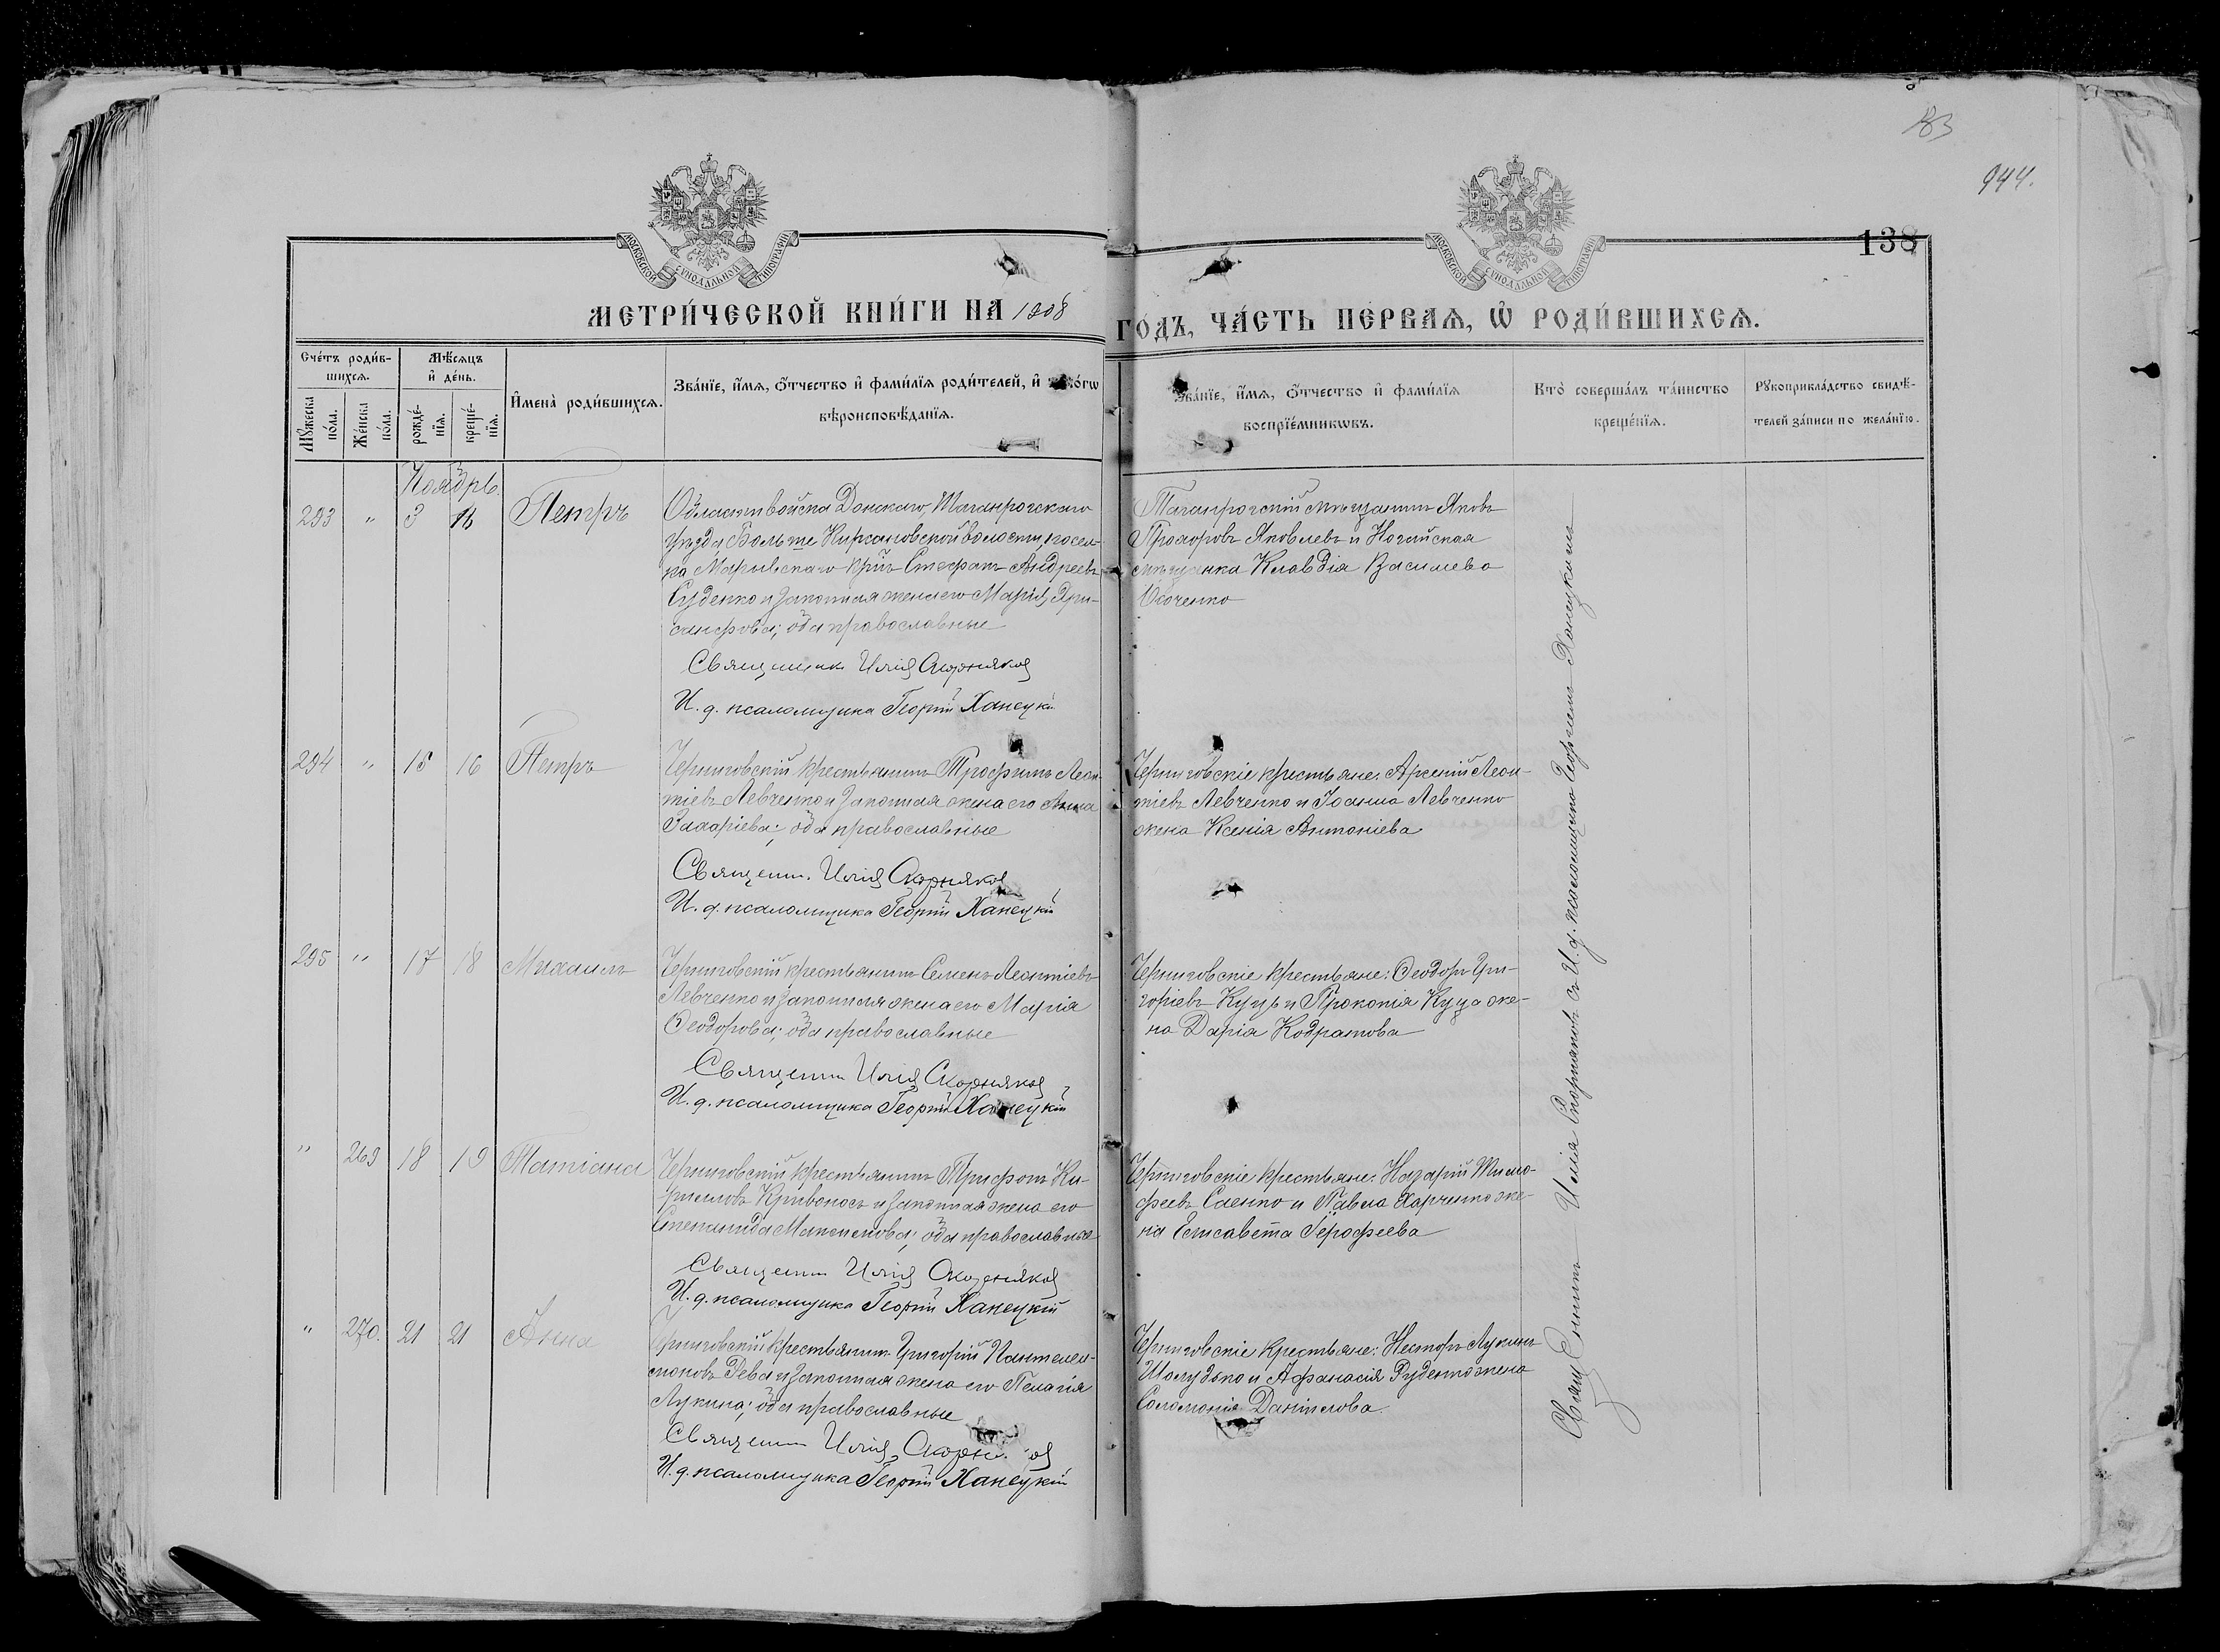 83
944.
138
МОСКОВСКОЙ СѴНОДАЛЬНОЙ ТИПОГРАФІИ
МОСКОВСКОЙ СѴНОДАЛЬНОЙ ТИПОГРАФІИ
МЕТРИ́ЧЕСКОЙ КНИ́ГИ НА 1908
ГОДЪ, ЧА́СТЬ ПЕ́РВАѦ, Ѡ҆ РОДИ́ВШИХСѦ.
Сче́тъ роди́в-
шихсѧ.
Мꙋ́жеска по́ла.
Же́нска по́ла.
Мѣ́сѧцъ
и҆ де́нь.
рожде́-
нїѧ.
креще́-
нїѧ.
И҆мена̀ роди́вшихсѧ.
Зва́нїе, и҆́мѧ, ѻ҆́тчество и҆ фами́лїѧ роди́телей, и҆
вѣроисповѣ́данїѧ.
Зва́нїе, и҆́мѧ, ѻ҆́тчество и҆ фами́лїѧ
воспрїе́мникѡвъ.
Кто̀ соверша́лъ та́инство
креще́нїѧ.
Рꙋкоприкла́дство свидѣ́-
телей за́писи по жела́нїю.
Ноябрь.
293 " 3 16 Петръ
Области войска Донского, Таганрогскаго
уѣзда, Больше Кирсановской волости, посел-
ка Марьевскаго кр-нъ Стефанъ Андреевъ
Суденко и законная жена его Марія Хри-
санфова; оба православные
Священник Илія Скорняков
И. д. псаломщика Георгій Ханецкій
Таганрогскій мѣщанинъ Яковъ
Прохоровъ Яковлевъ и Ногайская
мѣщанка Клавдія Василева
294 " 15 16 Петръ
Черниговскій крестьянинъ Трофимъ Леон-
тіевъ Левченко и законная жена его Анна
Захаріева; оба православные
Священн. Илія Скорняков
И. д. псаломщика Георгій Ханецкій
Черниговскіе крестьяне: Арсеній Леон-
тіевъ Левченко и Іоанна Левченко
жена Ксенія Антоніева
295 " 17 18 Михаилъ
Черниговскій крестьянинъ Семенъ Леонтіевъ
Левченко и законная жена его Марія
Ѳеодорова; оба православные
Священн Илія Скорняков
И. д. псаломщика Георгій Ханецкій
Черниговскіе крестьяне: Ѳеодоръ Гри-
горіевъ Куцъ и Прокопія Куца же-
на Дарія Кодратова
" 269 18 19 Татіана
Черниговскій крестьянинъ Трифонъ Ки-
рилловъ Кривоносъ и законная жена его
Степанида Максимова; оба православные
Священн Илія Скорняков
И. д. псаломщика Георгій Ханецкій
Черниговскіе крестьяне: Назарій Тимо-
феевъ Саенко и Павла Харченко же-
на Елисавета Іерофеева
" 270. 21 21 Анна
Черниговскій крестьянинъ Григорій Пантелеи-
моновъ Рева и законная жена его Пелагія
Лукина; оба православные
Священн Илія Скорняков
И. д. псаломщика Георгій Ханецкій
Черниговскіе крестьяне: Несторъ Лукинъ
Шолудько и Афанасія Руденко жена
Соломонія Даніилова.
Священникъ Илія Скорняковъ съ И. д. псаломщика Георгіемъ Ханецкимъ